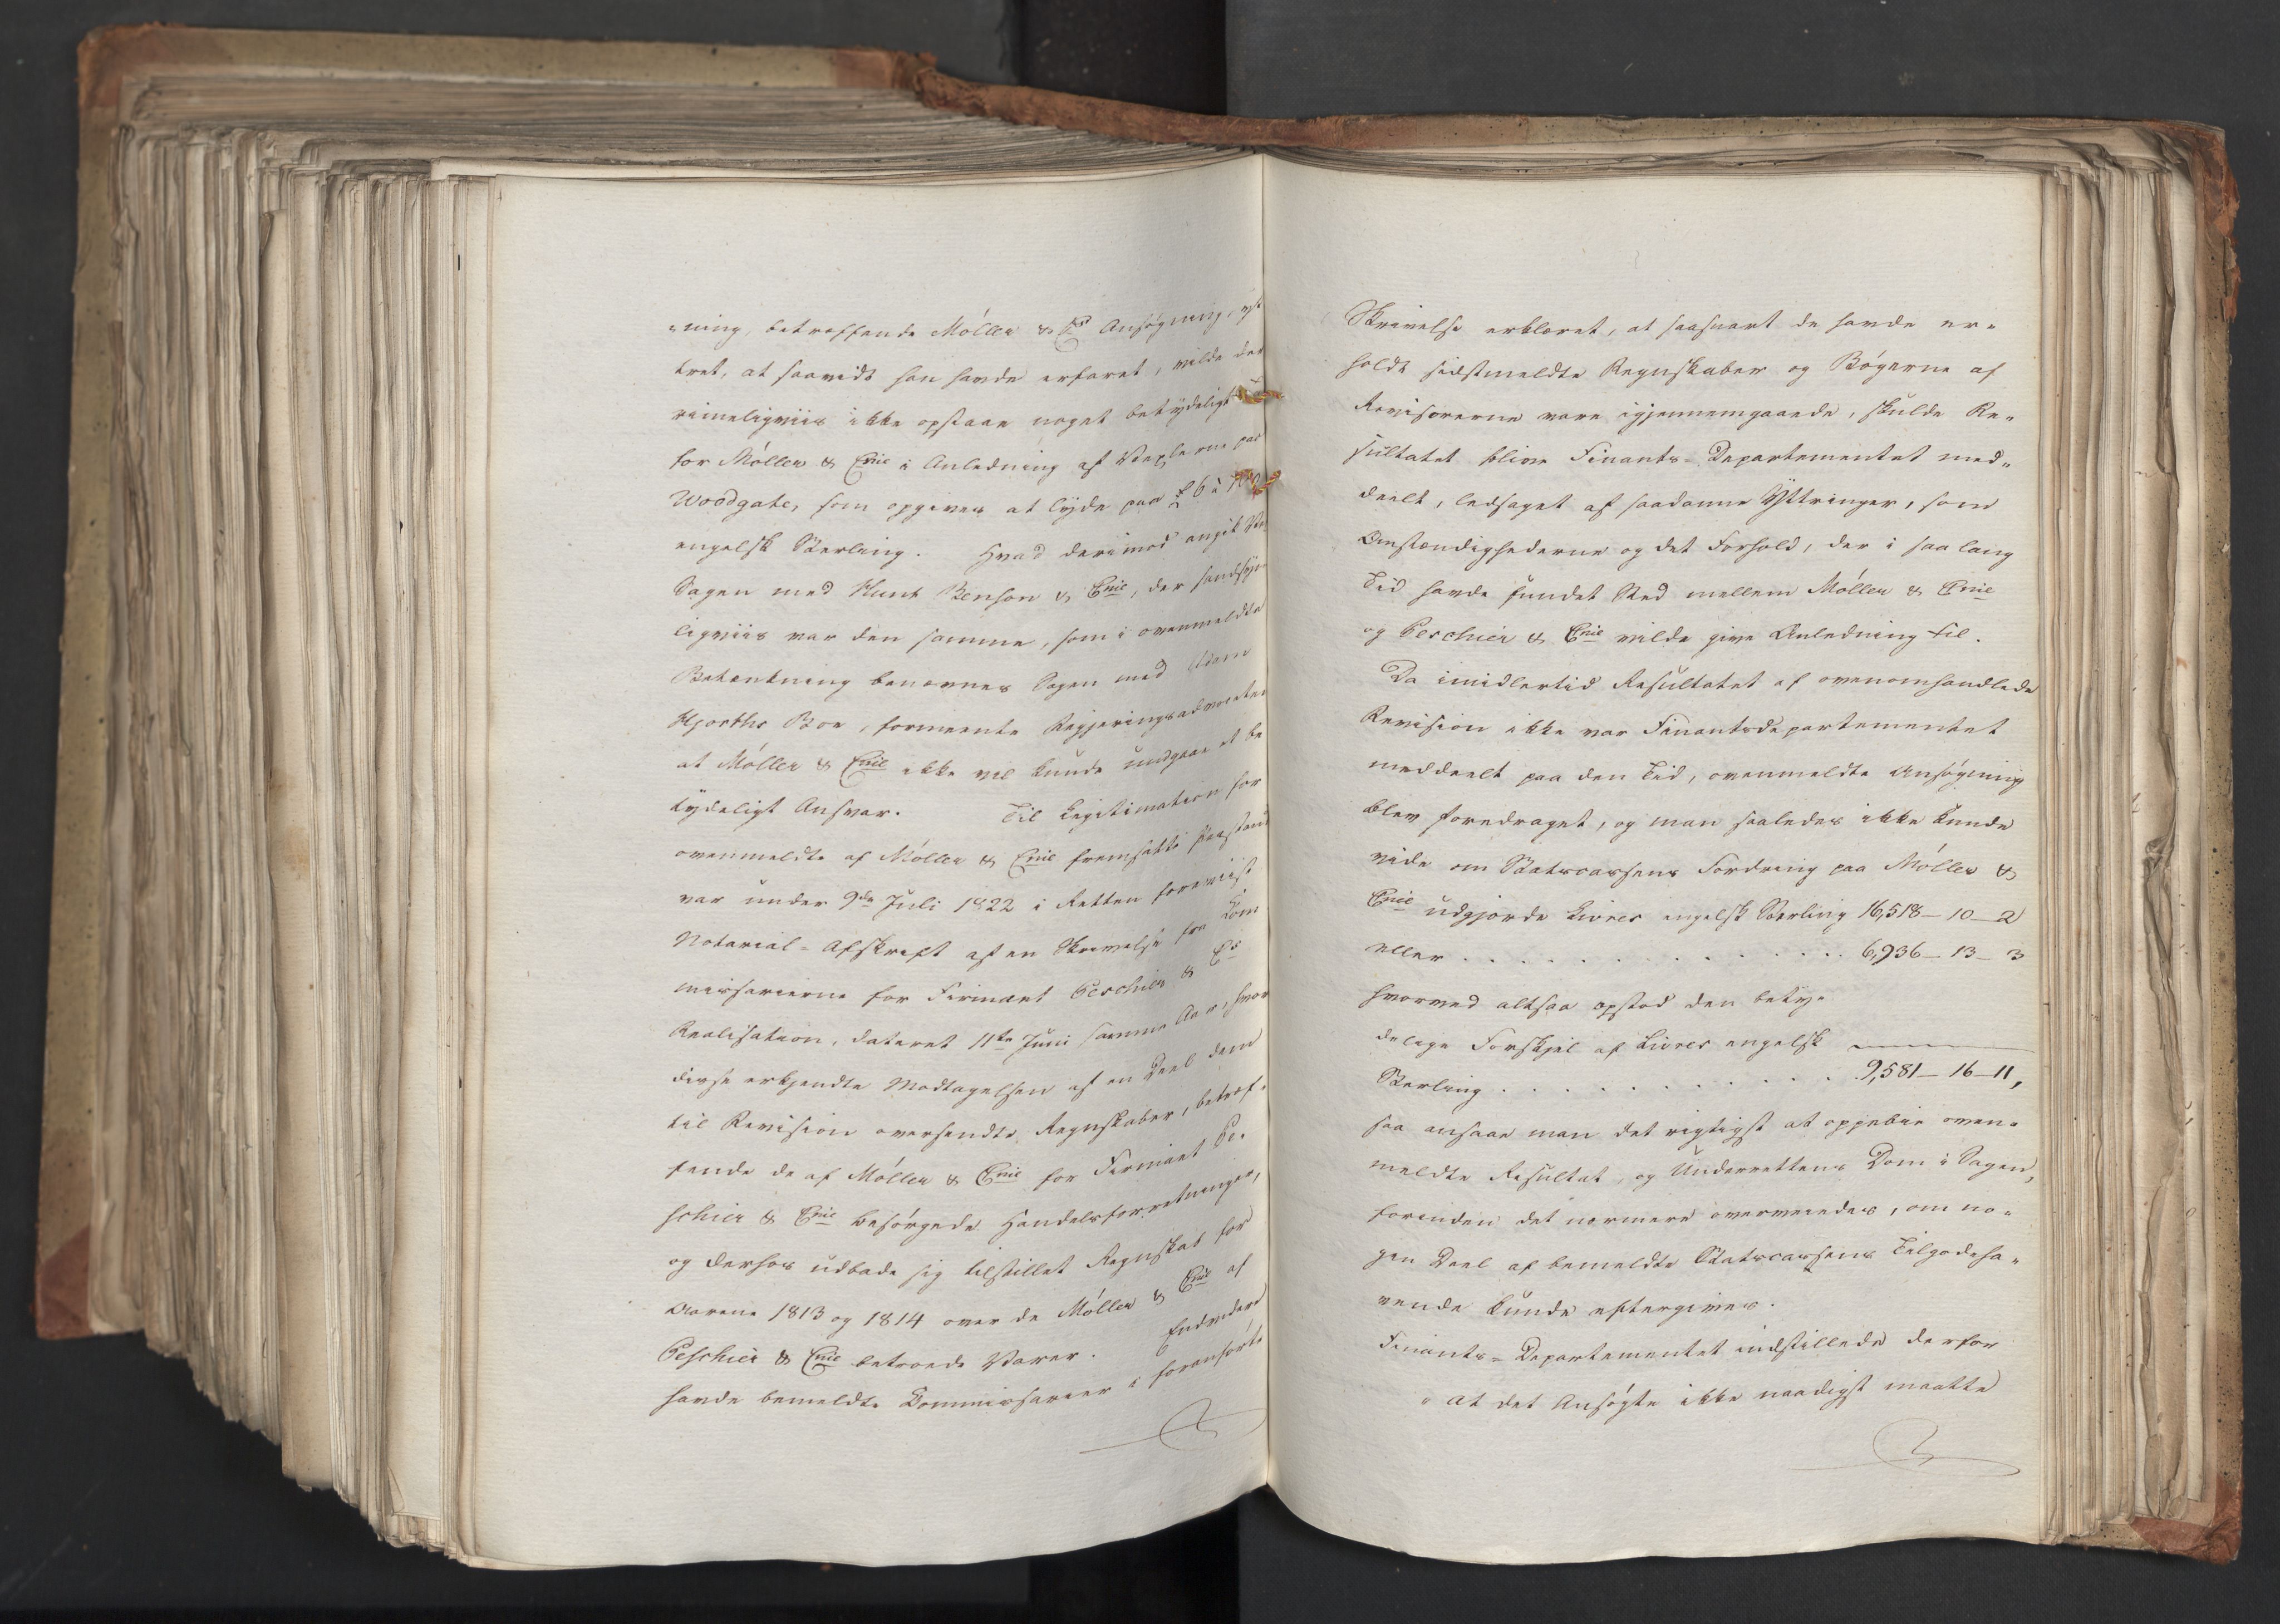 „ning, betreffende Møller & Cos Ansøgning, yt
tret, at saavidt han havde erfaret, vilde der
rimeligviis ikke opstaae noget betydeligt
for Møller & Cnie i Anledning af Vexlerne paa
Woodgate, som opgives at lyde paa £ 6 à
engelsk Sterling. Hvad derimod angik
Sagen med Hunt Benson & Cnie, der sandsyn
ligviis var den samme, som i ovenmeldte
Betænkning benævnes Sagen med Adam
Hjorths Boe, formeente Regjeringsadvocaten
at Møller & Cnie ikke vil kunde undgaae et be
tydeligt Ansvar. Til Legitimation for
ovenmeldte af Møller & Cnie fremsatte Paastand
var under 9de Juli 1822 i Retten foreviist
Notarial-Afskrift af en Skrivelse fra Kom
missarierne for Firmaet Peschier & Co
Realisation, dateret 11te Juni samme Aar, hvor
disse erkjendte Modtagelsen af en Deel dem
til Revision oversendte Regnskaber, betref-
fende de af Møller & Cnie for Firmaet Pe-
schier & Cnie besørgede Handelsforretninger,
og derhos udbade sig tilstillet Regnskab for
Aarene 1813 og 1814 over de Møller & Cnie af
Peschier & Cnie betroede Varer. Endvidere
havde bemeldte Kommissarier i foranførte
Skrivelse erklæret, at saasnart de havde er-
holdt sidstmeldte Regnskaber og Bøgerne af
Revisorerne vare igjennemgaaede, skulde Re-
sultatet blive Finants-Departementet med-
deelt, ledsaget af saadanne Yttringer, som
Omstændighederne og det Forhold, der i saa lang
Tid havde fundet Sted mellem Møller & Cnie
og Peschier & Cnie vilde give Anledning til.
Da imidlertid Resultatet af ovenomhandlede
Revision ikke var Finantsdepartementet
meddeelt paa den Tid, ovenmeldte Ansøgning
blev foredraget, og man saaledes ikke kunde
vide om Statscassens Fordring paa Møller &
Cnie udgjorde Livres engelsk Sterling 16,518-10-2
eller . . . . . . . . . . . . . . 6,936-13-3
hvorved altsaa opstod den bety-
delige Forskjel af Livres engelsk
Sterling . . . . . . . . . . . . 9,581-16-11,
saa ansaae man det rigtigst at oppebie oven-
meldte Resultat, og Underrettens Dom i Sagen,
forinden det nærmere overveiedes, om no-
gen Deel af bemeldte Statscassens Tilgodeha-
vende kunde eftergives.
Finants-Departementet indstillede derfor
" at det Ansøgte ikke naadigst maatte